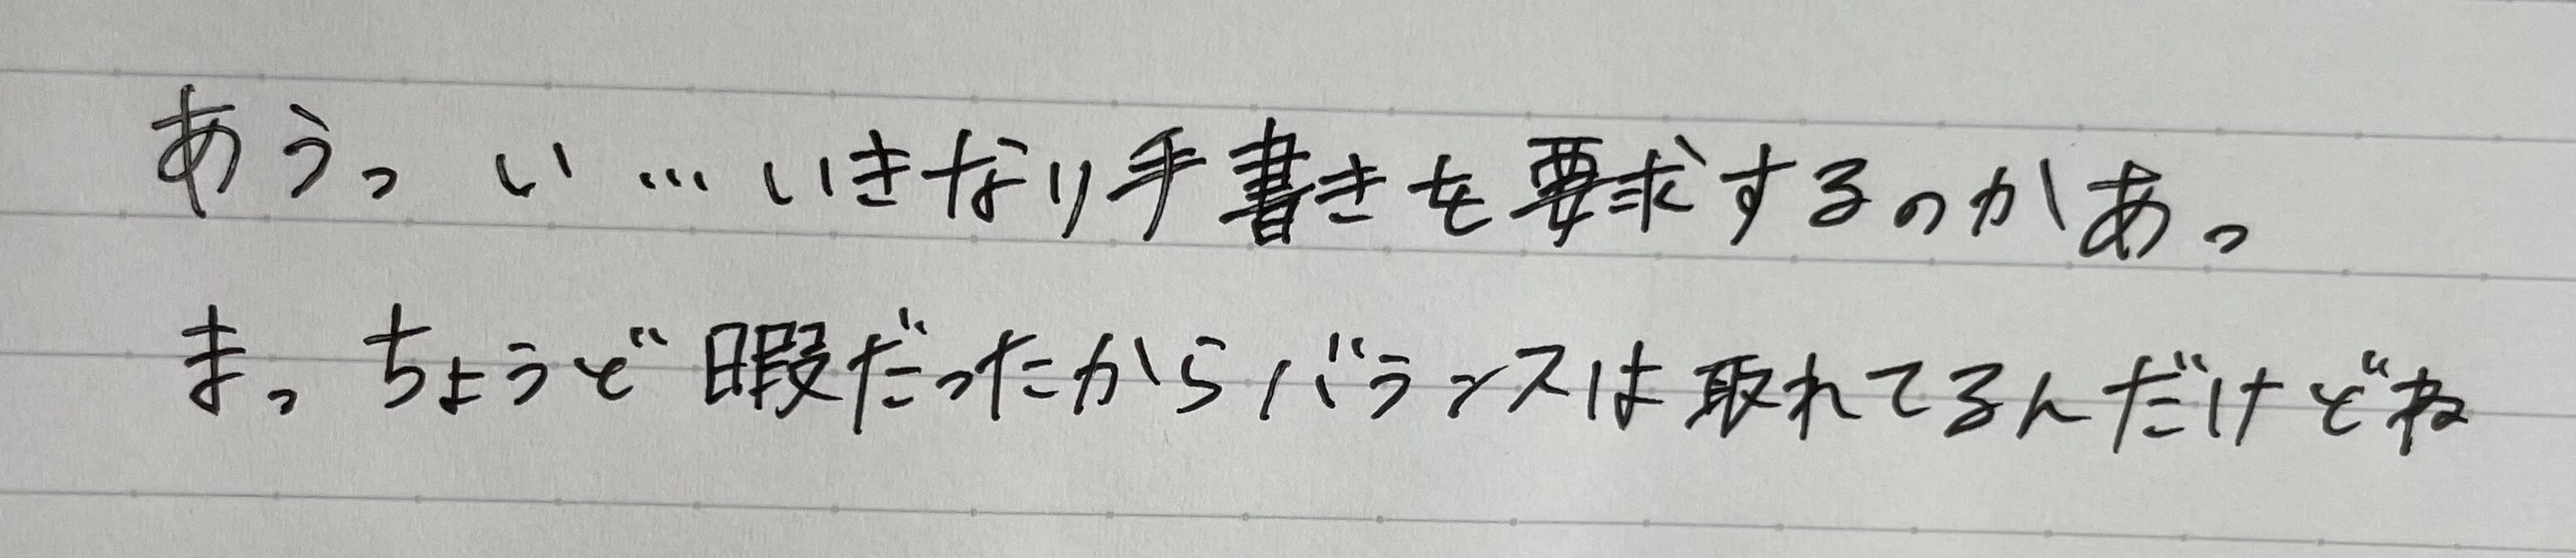 あうっ い…いきなり手書きを要求するのかあっ
まっ ちょうど暇だったからバランスは取れてるんだけどね